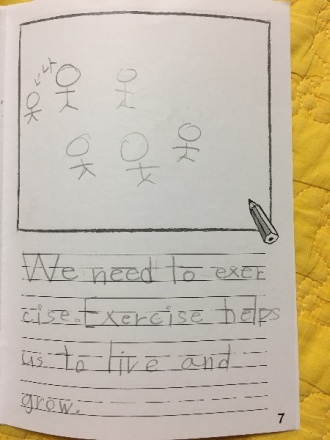 나
We need to exer
cise. Exercise helps
us to live and
grow.
7